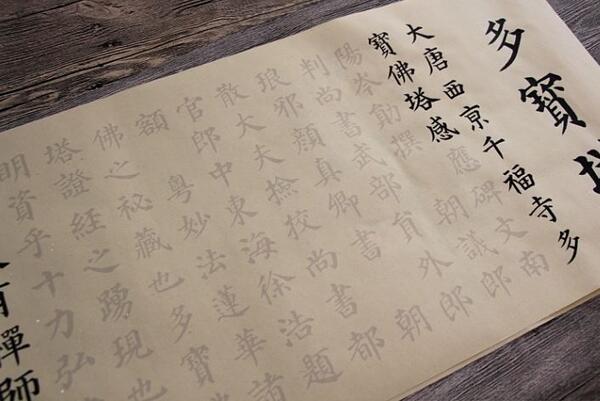 多寶
大唐西京千福寺多
寶佛塔感應碑文南
陽岑勛撰朝議郎
判尚書武部員外郎
琅邪顏真卿書朝
散大夫撿校尚書都
官郎中東海徐浩題
額粵妙法蓮華諸
佛之祕藏也多寶
塔證經之踴現也
明資乎十力弘
有禪師